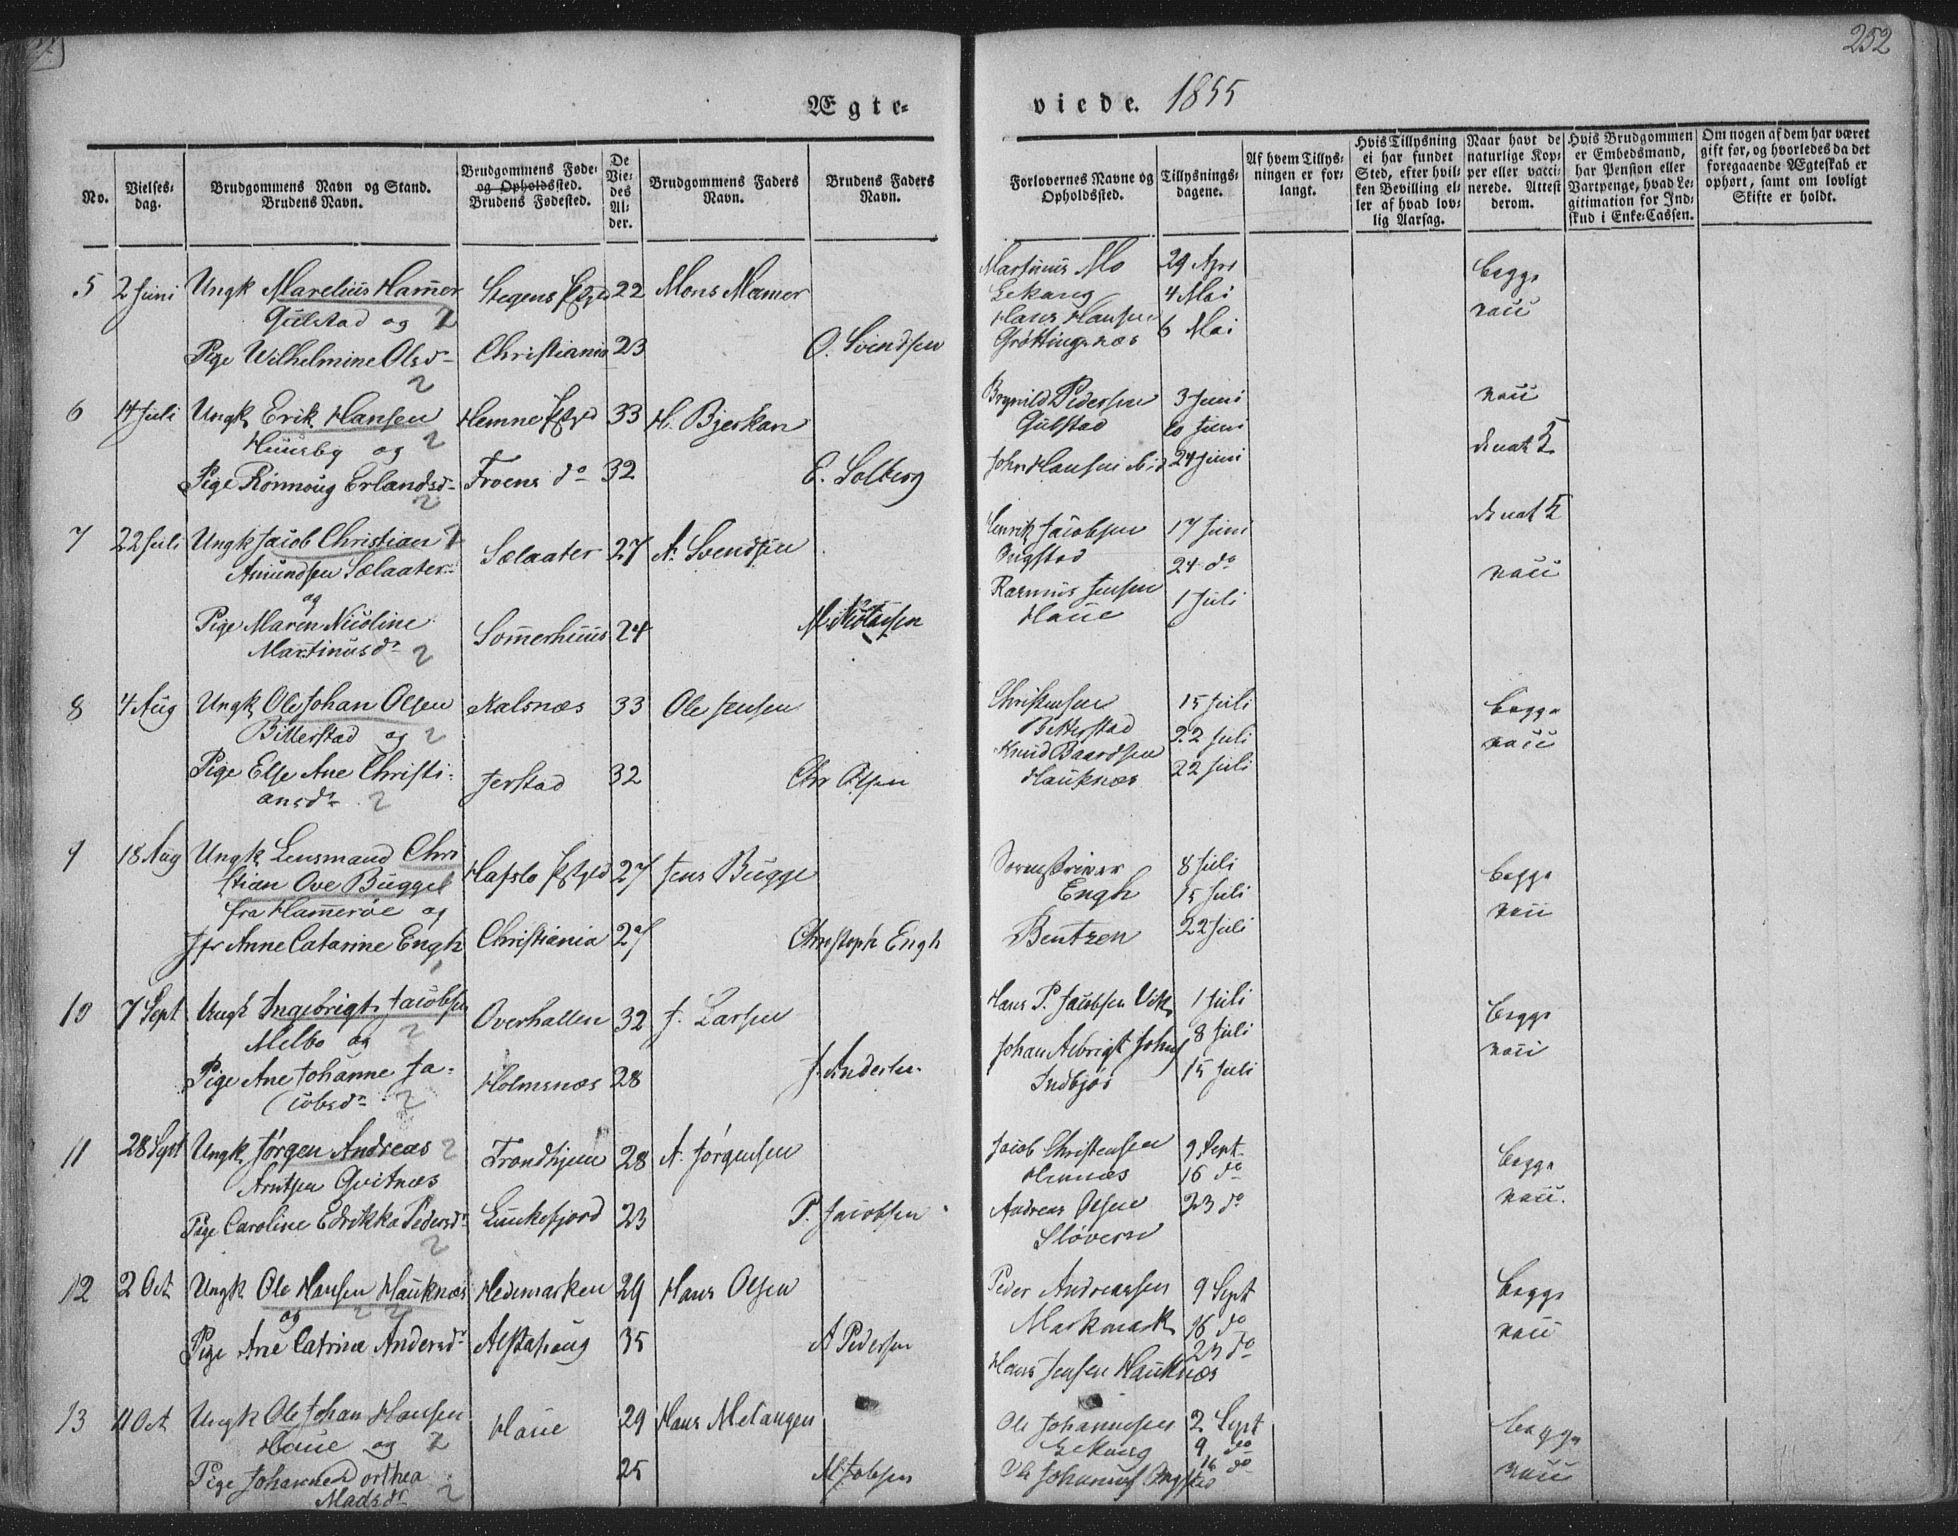 252
Ægte-
viede. 1855
No.
Vielses-
dag.
Brudgommens Navn og Stand.
Brudens Navn.
Brudgommens Føde-
og Opholdssted.
Brudens Fødested.
De
Vie-
des
Al-
der.
Brudgommens Faders
Navn.
Brudens Faders
Navn.
Forlovernes Navne og
Opholdssted.
Tillysnings-
dagene.
Af hvem Tillys-
ningen er for-
langt.
Hvis Tillysning
ei har fundet
Sted, efter hvil-
ken Bevilling el-
ler af hvad lov-
lig Aarsag.
Naar havt de
naturlige Kop-
per eller vacci-
nerede. Attest
derom.
Hvis Brudgommen
er Embedsmand,
har Pension eller
Vartpenge, hvad Le-
gitimation for Ind-
skud i Enke-Cassen.
Om nogen af dem har været
gift før, og hvorledes da det
foregaaende Ægteskab er
ophørt, samt om lovligt
Skifte er holdt.
5 2 Juni Ungk Marelius Hamer Stegens 22 Mons Mamer Martinus Mo 29 Apr begge
Gulstad og Gekang 4 Mai vacc
Hans Hansen 6 Mai
Pige Wilhelmine Olsd Christiania 23 O. Svendsen Grøttingsnæs
6 14 Juli Ungk Erik Hansen Hemne 33 H. Bjerkan Brynild Pedersen 3 Juni vacc
Huusby og Gulstad 10 Juni
Pige Rønnoug Erlandsd Froens do 32 E. Solberg John Hansen 24 Juni de nat K
7 22 Juli Ungk Jacob Christian Sælaater 27 A. Svendsen Henrik Jacobsen 17 Juni de nat K
Amundsen Sælaater 24 do
og Rasmus Jensen
Pige Maren Nicoline Sommerhuus 24 M. Nicolaysen Haue 1 Juli vacc
Martinusdr
8 4 Aug Ungk Ole Johan Olsen Kalsnæs 33 Ole Jensen Christensen 15 Juli begge
Bitterstad og Bitterstad 22 Juli vacc
Knud Baardsen
Pige Else Ane Christi- Jerstad 32 Chr Olsen Hauknæs 22 Juli
ansdr
9 18 Aug Ungk Lensmand Chri Hafslo 27 Jens Bugge Sorenskriver 8 Juli begge
stian Ove Bugge Engh 15 Juli vacc
fra Hamerøe og
Jfr Anne Catarine Engh Christiania 27 Christoph Engh Bentzen 22 Juli
10 7 Sept Ungk Ingebrigt Jacobsen Overhallen 32 J. Larsen Hans P. Jacobsen Vik 1 Juli begge
Melbo og Johan Albrigt Johns 8 Juli vacc
Pige Ane Johanne Ja- Holmsnæs 28 J. Anders Indbjør 15 Juli
cobsdr
11 28 Sept Ungk Jørgen Andreas Trondhjem 28 A. Jørgensen Jacob Christensen 9 Sept begge
Arntsen Qvitnæs 16 do vacc.
Pige Caroline Edrikke Pedersdr Lunkefjord 23 P. Jacobsen Andreas Olsen 23 do
Sløveren
12 2 Oct Ungk Ole Hansen Hauknæs Hedemarken 29 Hans Olsen Peder Andreassen 9 Sept begge
og Markmark 16 do vacc
Pige Ane Catrine Andersdr Alstahoug 35 A Pedersen 23 do
Hans Jensen Hauknæs
13 11 Oct Ungk Ole Johan Hansen Haue 29 Hans Melangen Ole Johannesen 2 Sept begge
Haue og 9 do
Pige Johanne Dorthea 25 M. Jobsen 16 do vacc
Madsdr